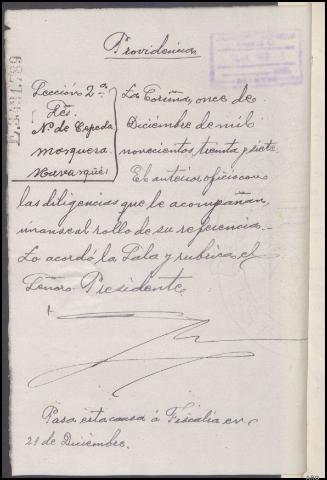 Providencia
Sección 2ª
N.º de Cepeda
Mosquera
La Coruña, once de
Diciembre de mil
novecientos treinta y siete
El anterior oficio con
las diligencias que le acompañan,
unanse al rollo de su referencia.
Lo acordó la Sala y rubrica el
Señor Presidente
Pasa esta causa á Fiscalía en
21 de Diciembre.